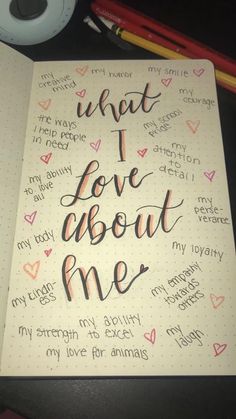 my creative mind
my humor
my smile
my courage
what
the ways I help people in need
my school pride
I
my attention to detail
my ability to love all
Love
my perse-verance
about
my body
my loyalty
me
my kind-ness
my empathy towards others
my ability to excel
my strength
my laugh
my love for animals